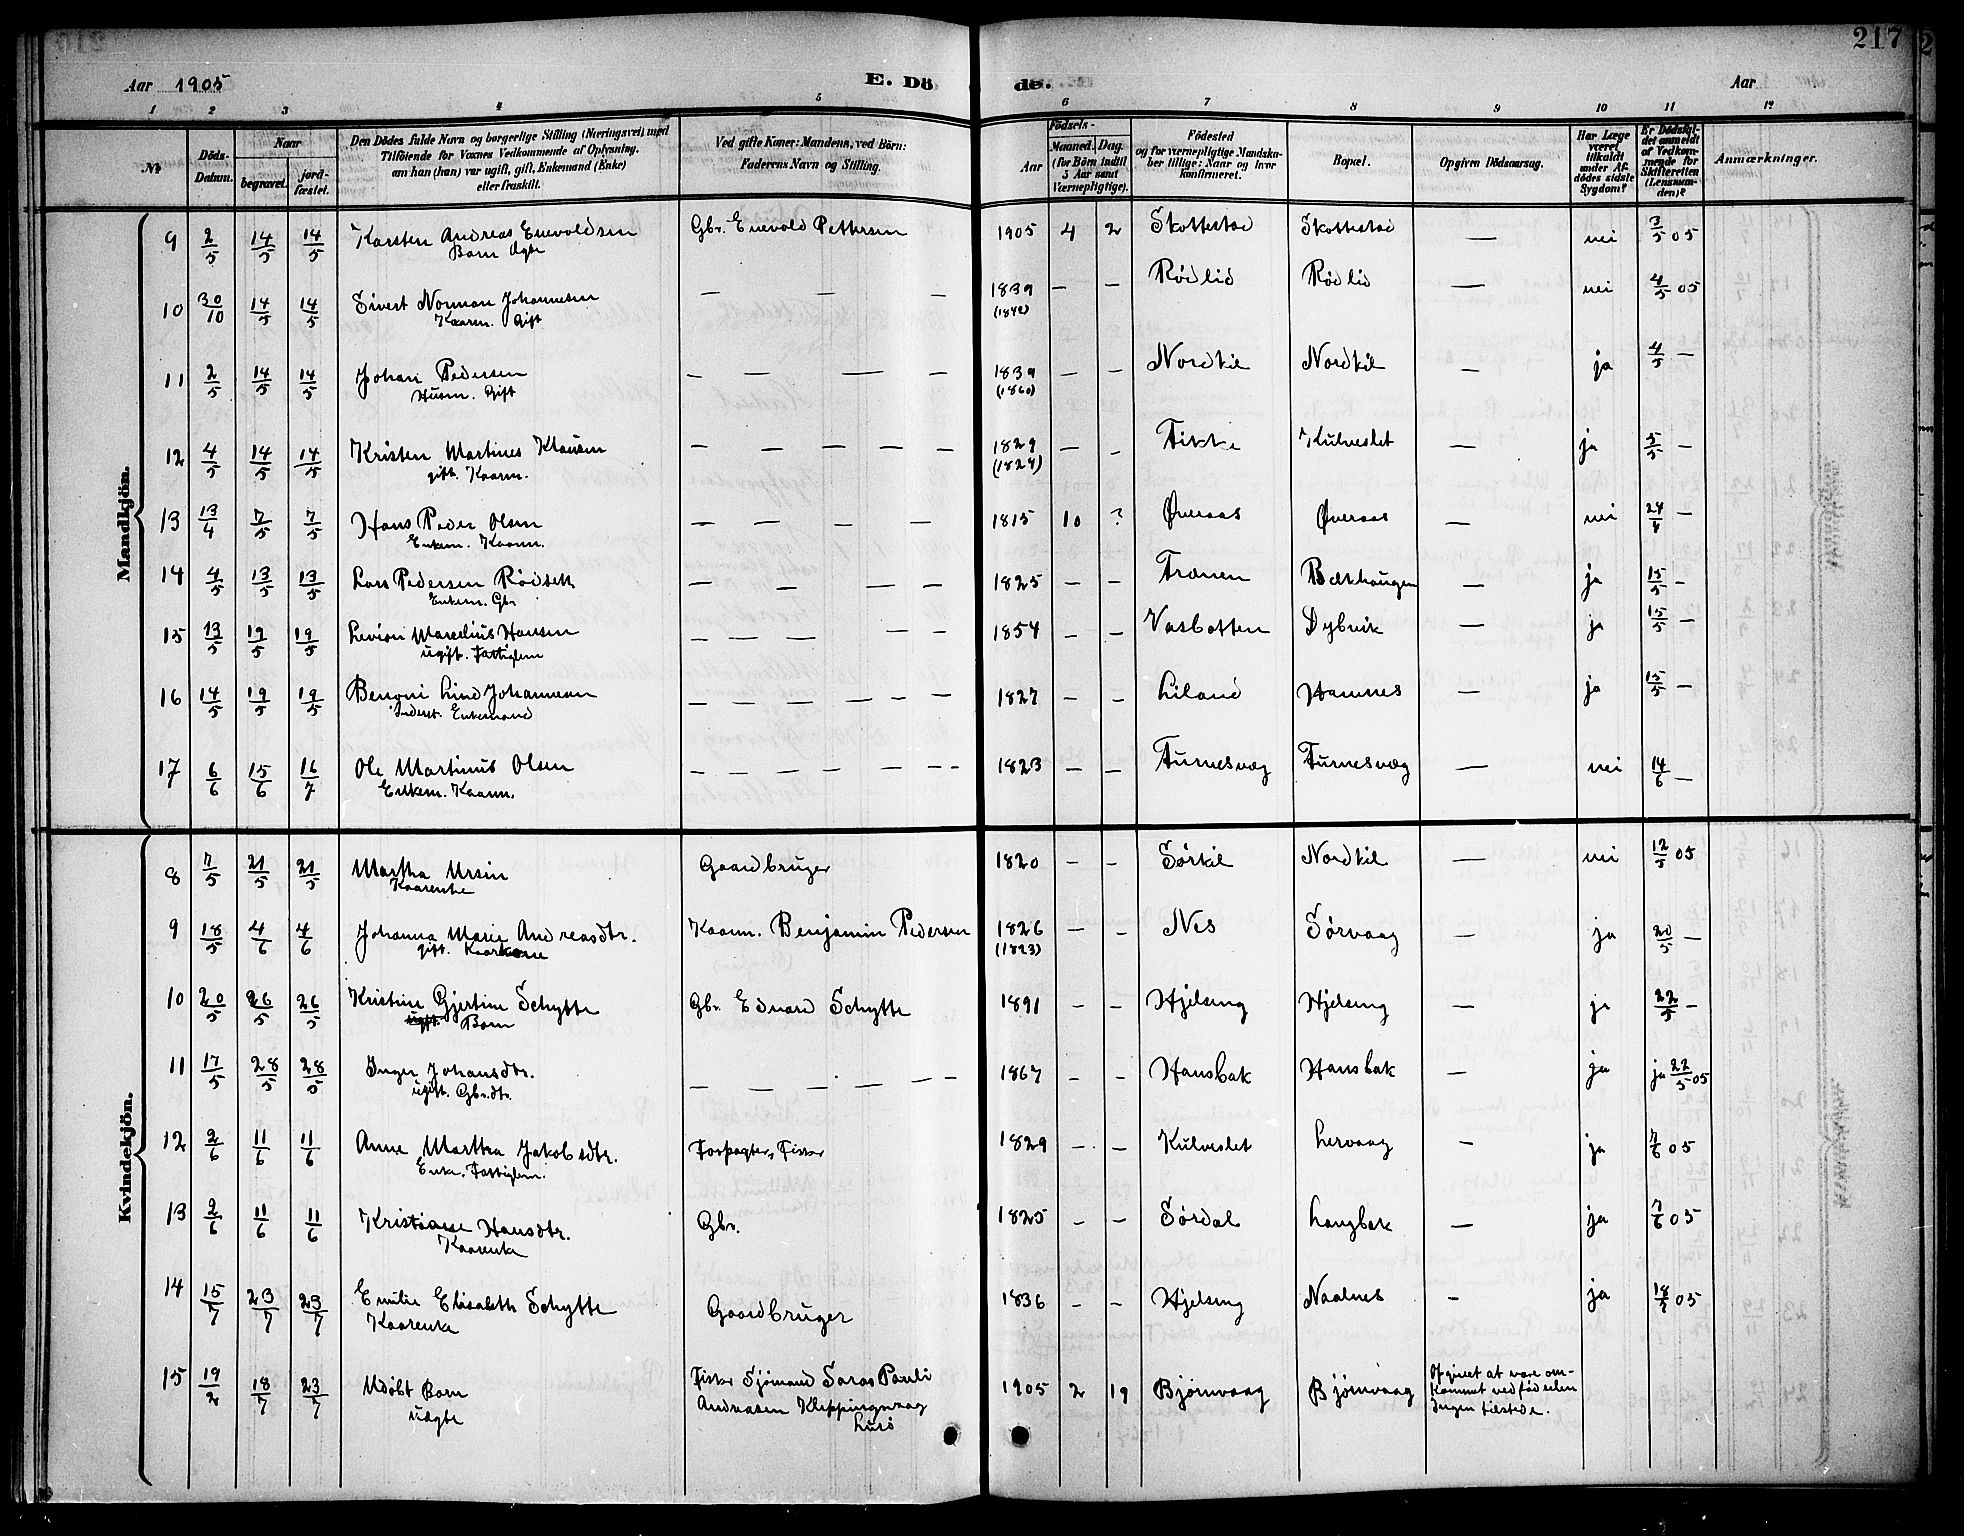 217
Aar 1905 E. Dö de. Aar
1 2 3 4 5 6 7 8 9 10 11 12
№ Döds-Datum. Naar begravet. jord-fæstet. Den Dödes fulde Navn og borgerlige Stilling (Næringsvei) med Tilföiende for Voxnes Vedkommende af Oplysning, om han (hun) var ugift, gift, Enkemand (Enke) eller fraskilt. Ved gifte Koner: Mandens, ved Börn: Faderens Navn og Stilling. Födsels- Aar Maaned. Dag. (for Börn indtil 5 Aar samt Værnepligtige). Födested og for værnepligtige Mandskaber tillige: Naar og hvor konfirmeret. Bopæl. Opgiven Dödsaarsag. Har Læge været tilkaldt under Afdödes sidste Sygdom? Er Dödsfaldet anmeldt af Vedkommende for Skifteretten (Lensmanden)? Anmærkninger.
Mandkjön.
9 2/5 14/5 14/5 Karsten Andreas Enevoldsen Gbr. Enevold Pettersen 1905 4 2 Skottestad Skottestad — nei 3/5 05
Barn Ægte
10 30/10 14/5 14/5 Sivert Norman Johannesen — — — 1839 — — Rødlid Rødlid — nei 4/5 05
Kaarm. Gift (1842)
11 2/5 14/5 14/5 Johan Pedersen — — — — 1839 — — Nordkil Nordkil — ja 4/5 —
Husm. Gift (1860)
12 4/5 14/5 14/5 Kristen Martines Klausen — — — — — 1829 — — Fikke Kulveslet — ja 5/5 —
gift. Kaarm. (1824)
13 13/4 7/5 7/5 Hans Peder Olsen — — — — 1815 10 ? Øveraas Øveraas — nei 24/4 —
Enkem. Kaarm.
14 4/5 13/5 13/5 Lars Pedersen Rødseth — — — — 1825 — — Trænen Bækhaugen — ja 15/5 —
Enkem. Gbr
15 13/5 19/5 19/5 Levion Marelius Hansen — — — — — 1854 — — Vasbotten Dybvik — ja 15/5 —
ugift. Fattiglem
16 14/5 19/5 19/5 Benoni Lind Johannesen — — — — — — 1827 — — Liland Hamnes — ja 15/5 —
Inderst. Enkemand
17 6/6 15/6 16/7 Ole Martinus Olsen — — — — — — — 1823 — — Furnesvæg Furnesvæg — nei 14/6 —
Enkem. Kaarm.
Kvindekjön.
8 7/5 21/5 21/5 Martha Ursin Gaardbruger 1820 — — Sørkil Nordkil — nei 12/5 05
Kaarenke
9 18/5 4/6 4/6 Johanna Marie Andreasdtr. Kaarm. Benjamin Pedersen 1826 — — Nes Sørvaag — ja 20/5 —
gift. Kaarkone (1823)
10 20/5 26/5 26/5 Kristine Gjertine Schytte Gbr. Edvard Schytte 1891 — — Hjelsing Hjelsing — ja 22/5 —
ugft. Barn
11 17/5 28/5 28/5 Inger Johansdtr. — — — — — — 1867 — — Hansbak Hansbak — ja ja 22/5 05
ugift. Gbr.dtr.
12 2/6 11/6 11/6 Anne Martha Jakobsdtr. Forpagter, Fisker 1829 — — Kulveslet Lervaag — ja 7/6 05
Enke. Fattiglem.
13 2/6 11/6 11/6 Kristiane Hansdtr. Gbr. 1825 — — Sørdal Langbak — ja 7/6 05
Kaarenke
14 15/7 23/7 23/7 Emilie Elisabeth Schytte Gaardbruger 1836 — — Hjelsing Naalnes — ja 18/7 05
Kaarenke
15 19/2 18/7 23/7 Udøbt Barn Fisker Sjømand Soras Pauli 1905 2 19 Bjørnvaag Bjørnvaag Opgivet at være om-
uægte Andreasen Kleppingvaag kommet ved fødselen
Lurø Ingen tilstede.